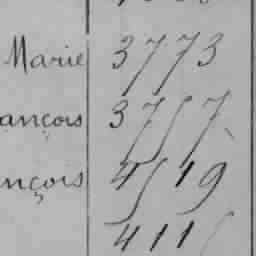 Marie 3773
ançois 3757
nçois 4519
411